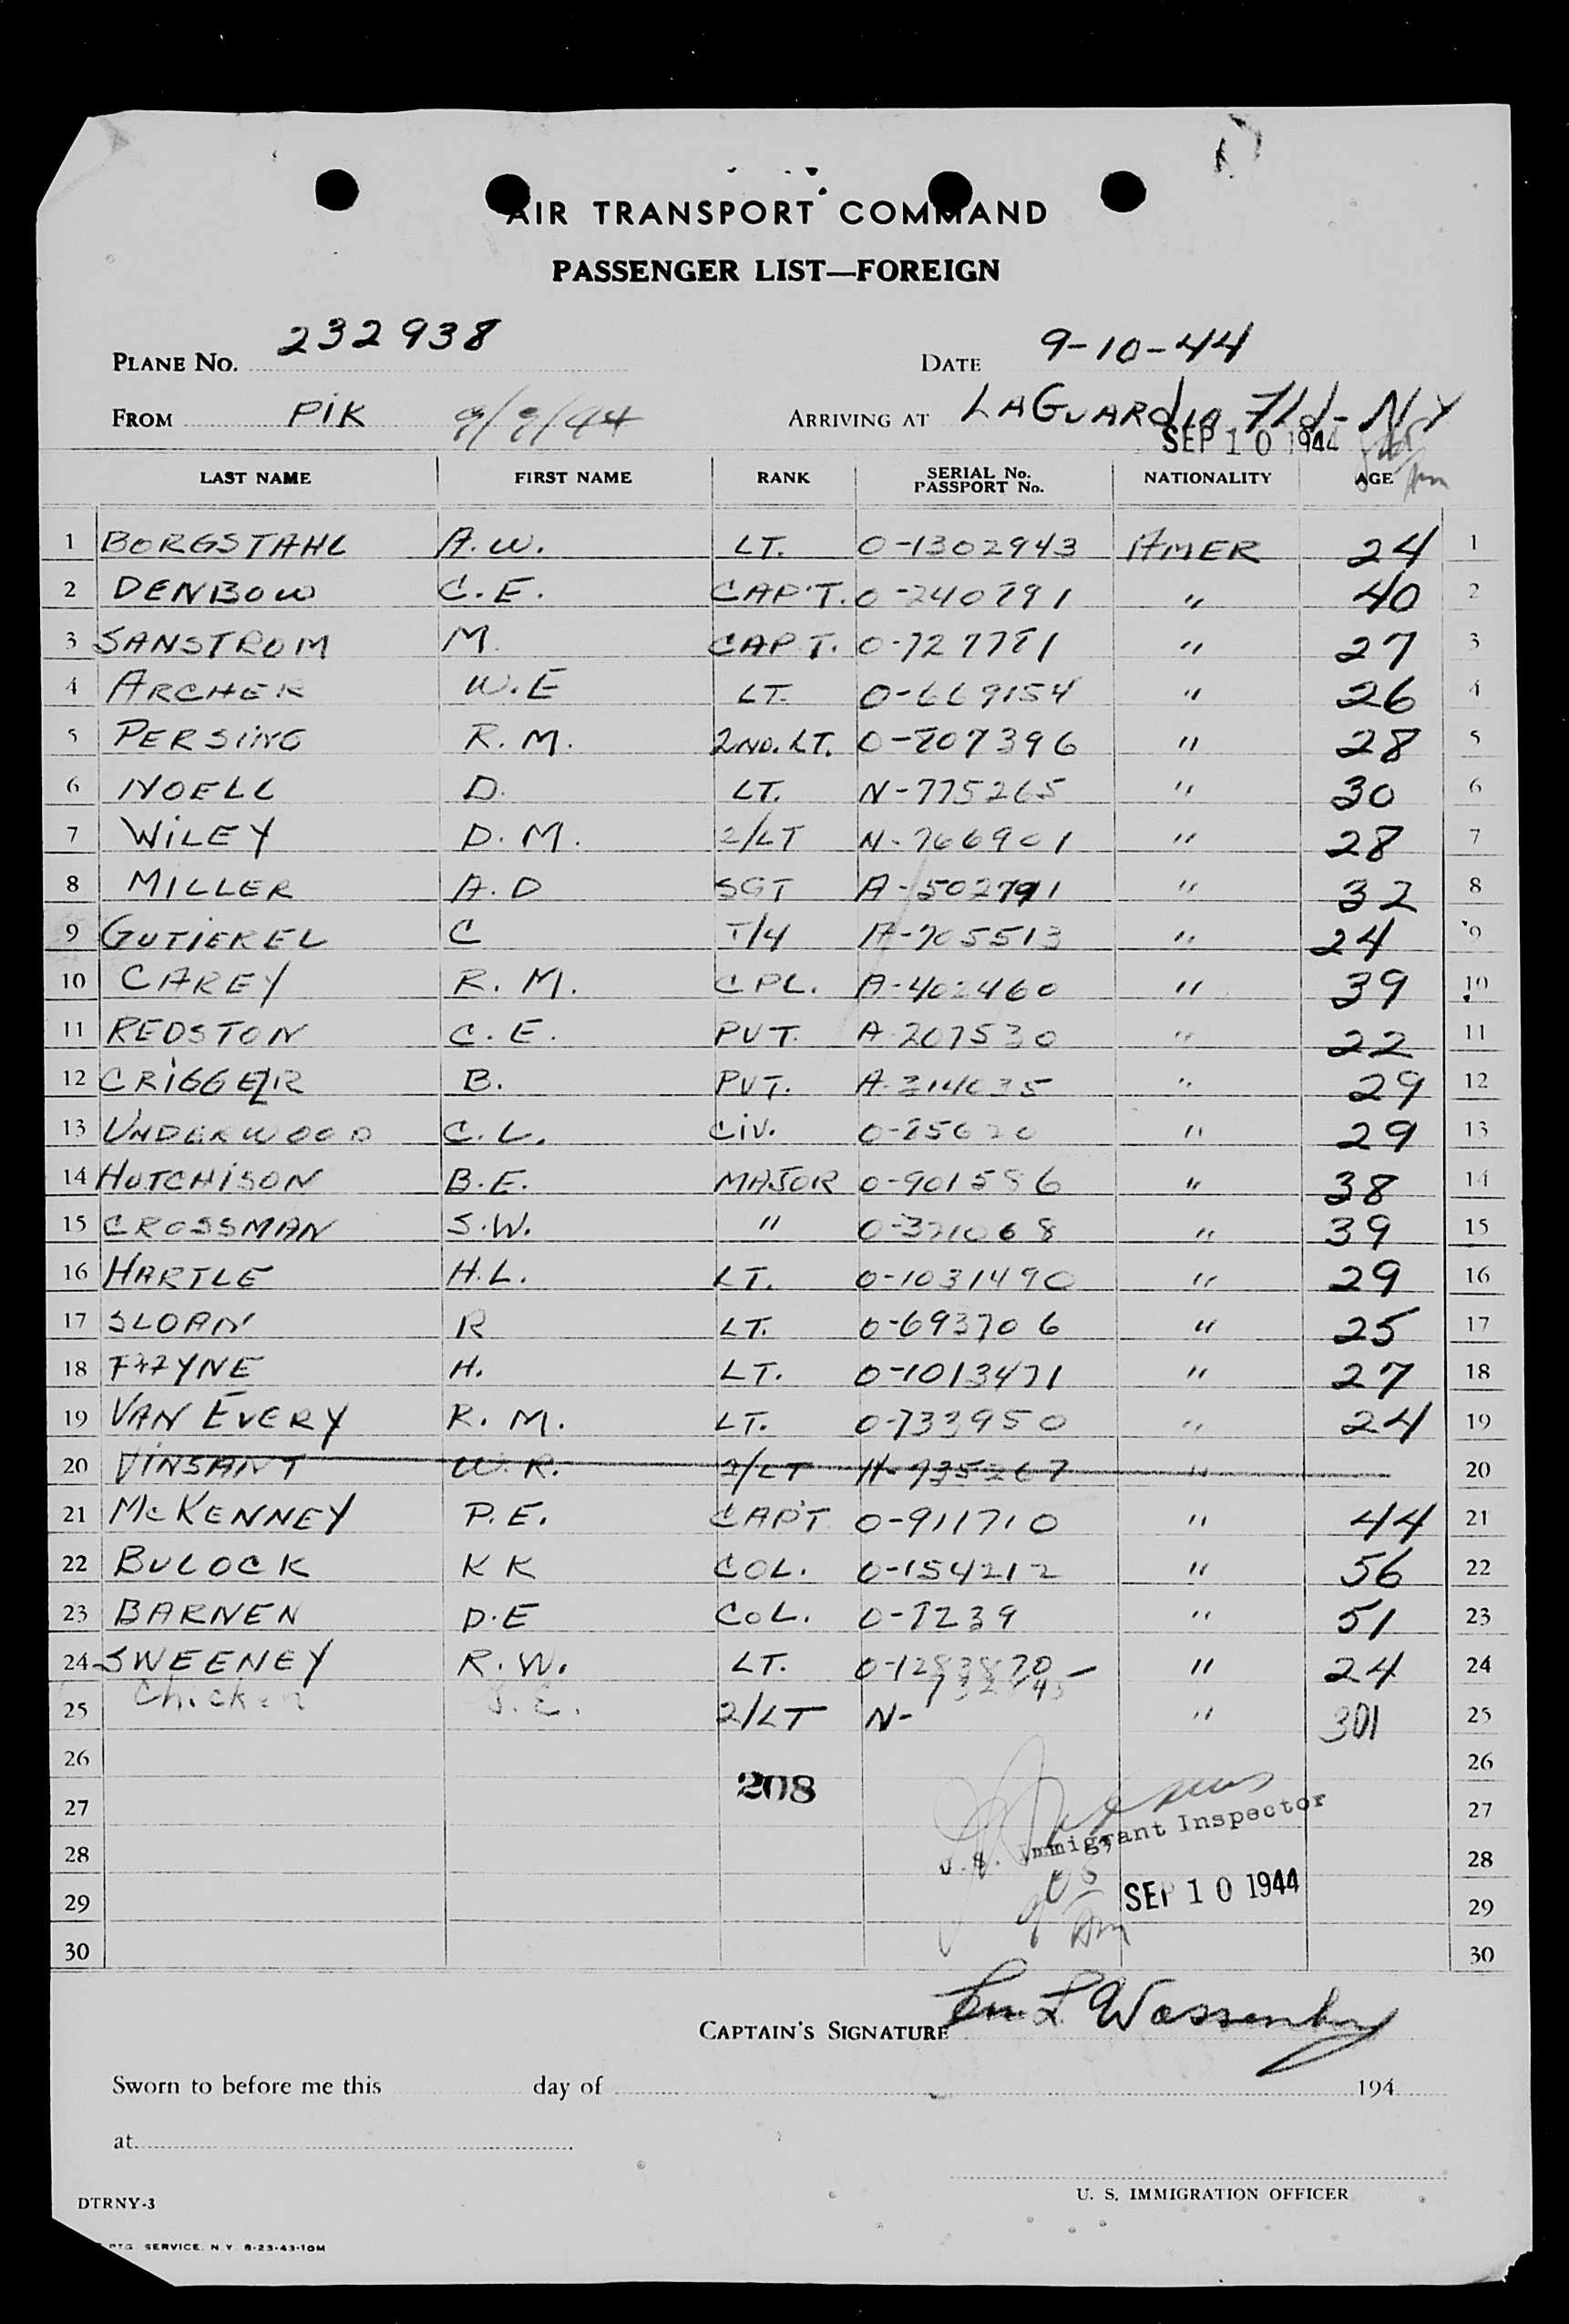 AIR TRANSPORT COMMAND
PASSENGER LIST—FOREIGN
PLANE No. 232938 DATE 9-10-44
FROM PIK 9/9/44 ARRIVING AT LAGUARDIA Fld- NY
SEP 10 1944
LAST NAME FIRST NAME RANK SERIAL No. PASSPORT No. NATIONALITY AGE
1 BORGSTAHL A.W. LT. O-1302943 AMER 24 1
2 DENBOW C.E. CAPT. O-240891 " 40 2
3 SANSTROM M. CAPT. O-727781 " 27 3
4 ARCHER W.E LT. O-669154 " 26 4
5 PERSING R.M. 2ND. LT. O-807396 " 28 5
6 NOELL D. LT. N-775265 " 30 6
7 WILEY D.M. 2/LT N-766901 " 28 7
8 MILLER A.D SGT A-502791 " 32 8
9 GUTIEREL C T/4 A-705513 " 24 9
10 CAREY R.M. CPL. A-402460 " 39 10
11 REDSTON C.E. PVT. A-207530 " 22 11
12 CRIGGER B. PVT. " 29 12
13 UNDERWOOD C.L. CIV. " 29 13
14 HUTCHISON B.E. MAJOR O-901586 " 38 14
15 CROSSMAN S.W. " O-321068 " 39 15
16 HARTLE H.L. LT. O-1031490 " 29 16
17 SLOAN R LT. O-693706 " 25 17
18 H. LT. O-1013471 " 27 18
19 VAN EVERY R.M. LT. O-733950 " 24 19
20 VINSANT W.R. 2/LT " 20
21 McKENNEY P.E. CAPT O-911710 " 44 21
22 BULOCK K K COL. O-154212 " 56 22
23 BARNEN D.E COL. O-7239 " 51 23
24 SWEENEY R.W. LT. O-1283870 - " 24 24
25 Chicken J.E. 2/LT N- " 25
26 26
208
27 27
U.S. Immigrant Inspector
28 28
29 SEP 10 1944 29
30 30
CAPTAIN'S SIGNATURE
Sworn to before me this day of 194
at
DTRNY-3 U. S. IMMIGRATION OFFICER
PTG. SERVICE. N.Y. 8-23-43-10M